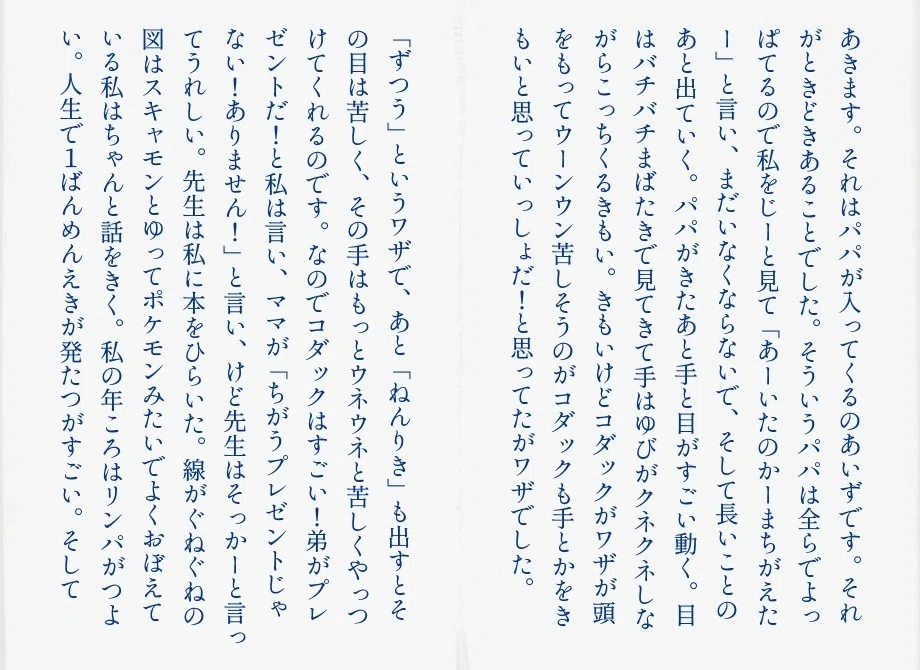 あきます。それはパパが入ってくるのあいずです。それ
がときどきあることでした。そういうパパは全らでよっ
ぱてるので私をじーと見て「あーいたのかーまちがえた
ー」と言い、まだいなくならないで、そして長いことの
あと出ていく。パパがきたあと手と目がすごい動く。目
はバチバチまばたきで見てきて手はゆびがクネクネしな
がらこっちくるきもい。きもいけどコダックがワザが頭
をもってウーンウン苦しそうのがコダックも手とかをき
もいと思っていっしょだ！と思ってたがワザでした。
「ずつう」というワザで、あと「ねんりき」も出すとそ
の目は苦しく、その手はもっとウネウネと苦しくやっつ
けてくれるのです。なのでコダックはすごい！弟がプレ
ゼントだ！と私は言い、ママが「ちがうプレゼントじゃ
ない！ありません！」と言い、けど先生はそっかーと言っ
てうれしい。先生は私に本をひらいた。線がぐねぐねの
図はスキャモンとゆってポケモンみたいでよくおぼえて
いる私はちゃんと話をきく。私の年ころはリンパがつよ
い。人生で１ばんめんえきが発たつがすごい。そして